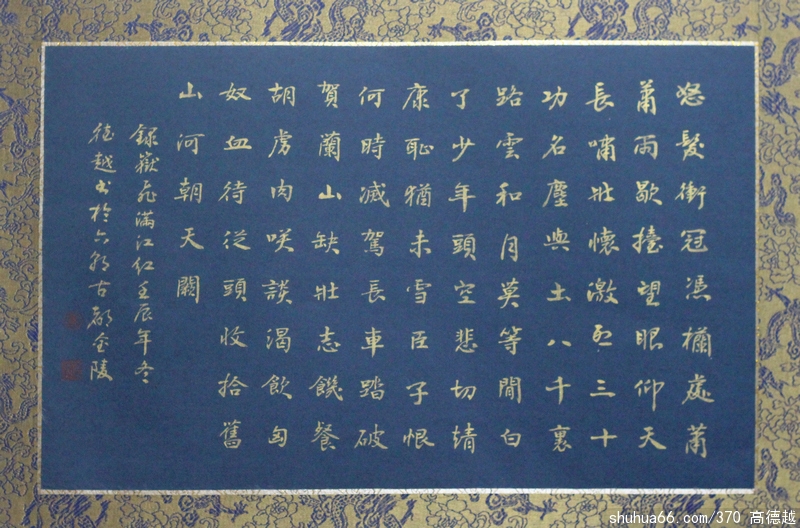 怒髮衝冠憑欄處蕭
蕭雨歇擡望眼仰天
長嘯壯懷激烈三十
功名塵與土八千裏
路雲和月莫等閒白
了少年頭空悲切靖
康恥猶未雪臣子恨
何時滅駕長車踏破
賀蘭山缺壯志饑餐
胡虜肉咲談渴飲匈
奴血待從頭收拾舊
山河朝天闕
錄嶽飛滿江紅壬辰年冬
德越書於六朝古都金陵
shuhua66.com/370 高德越